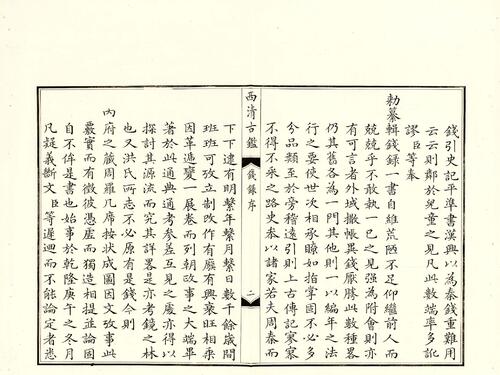 錢引史記平準書漢興以為秦錢重難用
云云則鄰於兒童之見凡此數端率多訛
謬臣等奉
勅纂輯錢錄一書自維荒陋不足仰繼前人而
兢兢乎不敢執一己之見強為附會則亦
有可言者外域撒帳異錢厭勝此數種畧
仍其舊各為一門其他則一以編年之法
行之要使世次相承瞭如指掌固不必多
分品類至於旁稽遠引則上古傳記寥寥
不得不采之路史參以諸家若夫周秦而
西清古鑑
錢錄序
二
下下逮有明繫年繫月繫日數千餘歲間
班班可攷立制改作有廢有興衰旺相乗
因革遞變一展卷而列朝政事之大端畢
著於此通典通考參差互見之處亦得以
探討其源流而究其詳畧是亦考鏡之林
也又洪氏所志不必原有是錢今則
內府之藏周羅几席按狀成圖因文攷事此
覈實而有徵彼憑虛而獨造相提並論固
自不侔是書也始事於乾隆庚午之冬月
凡疑義斷文臣等遲迴而不能論定者悉